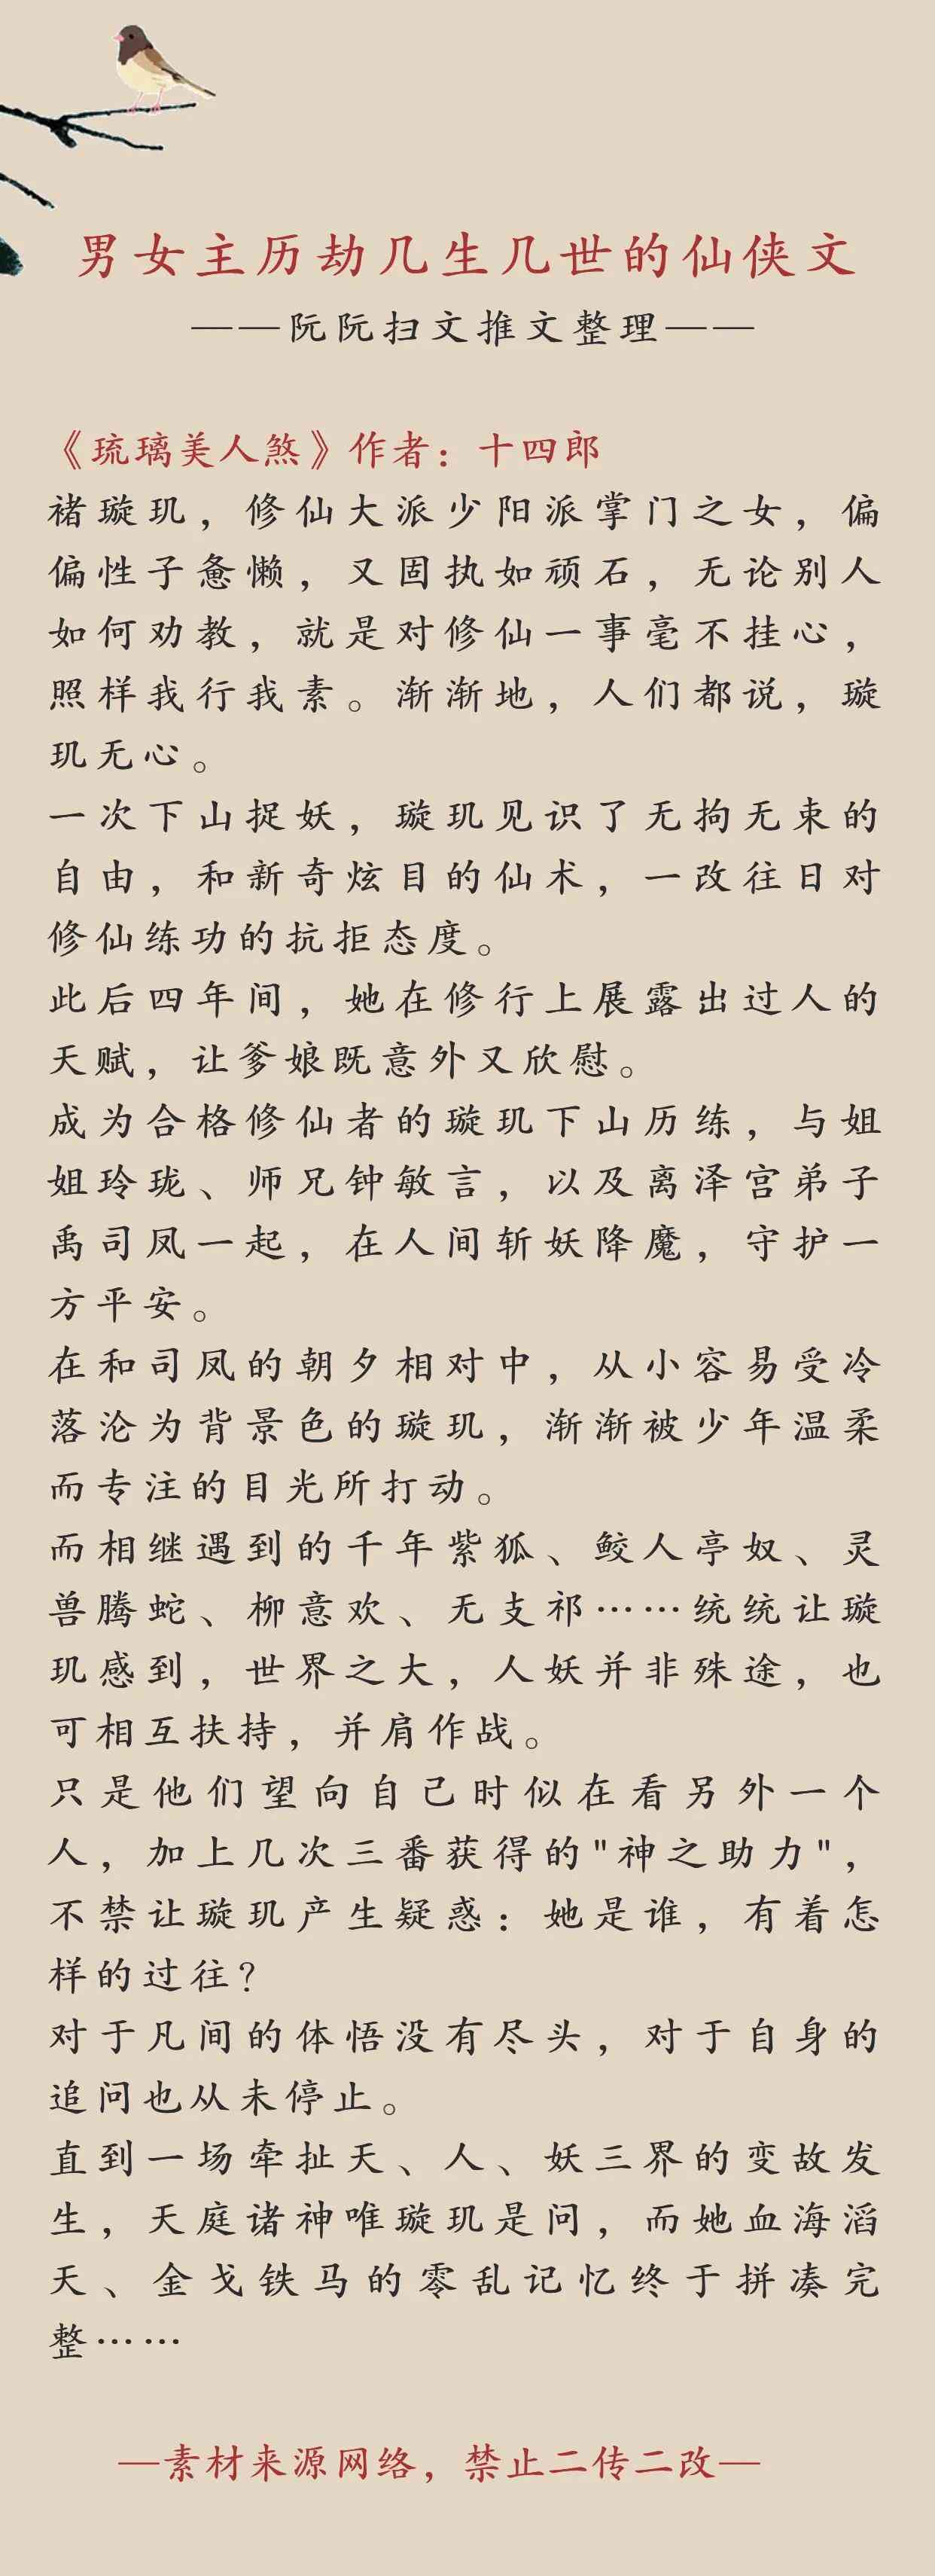 男女主历劫几生几世的仙侠文
——阮阮扫文推文整理——
《琉璃美人煞》作者：十四郎
褚璇玑，修仙大派少阳派掌门之女，偏
偏性子惫懒，又固执如顽石，无论别人
如何劝教，就是对修仙一事毫不挂心，
照样我行我素。渐渐地，人们都说，璇
玑无心。
一次下山捉妖，璇玑见识了无拘无束的
自由，和新奇炫目的仙术，一改往日对
修仙练功的抗拒态度。
此后四年间，她在修行上展露出过人的
天赋，让爹娘既意外又欣慰。
成为合格修仙者的璇玑下山历练，与姐
姐玲珑、师兄钟敏言，以及离泽宫弟子
禹司凤一起，在人间斩妖降魔，守护一
方平安。
在和司凤的朝夕相对中，从小容易受冷
落沦为背景色的璇玑，渐渐被少年温柔
而专注的目光所打动。
而相继遇到的千年紫狐、鲛人亭奴、灵
兽腾蛇、柳意欢、无支祁……统统让璇
玑感到，世界之大，人妖并非殊途，也
可相互扶持，并肩作战。
只是他们望向自己时似在看另外一个
人，加上几次三番获得的"神之助力"，
不禁让璇玑产生疑惑：她是谁，有着怎
样的过往？
对于凡间的体悟没有尽头，对于自身的
追问也从未停止。
直到一场牵扯天、人、妖三界的变故发
生，天庭诸神唯璇玑是问，而她血海滔
天、金戈铁马的零乱记忆终于拼凑完
整……
—素材来源网络，禁止二传二改—